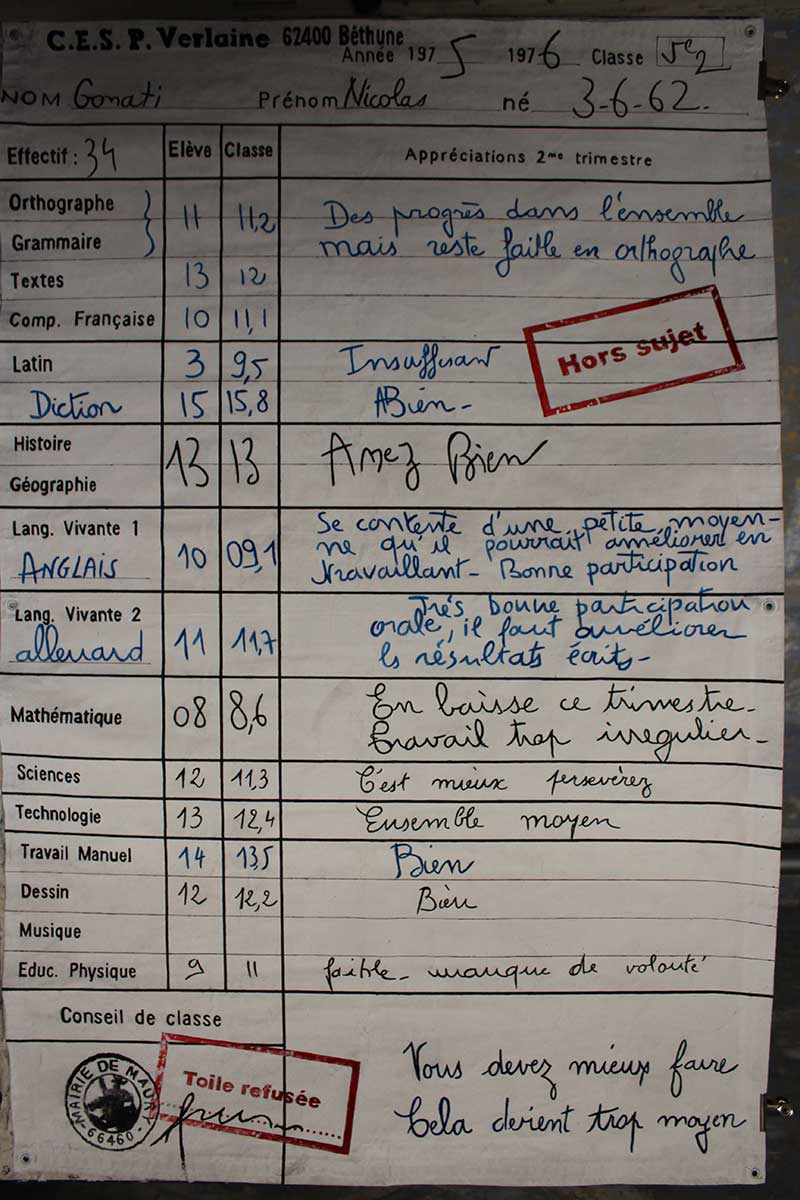 C.E.S. P. Verlaine 62400 Béthune
Année 1975 1976 Classe 5e2
NOM Gonati Prénom Nicolas né 3-6-62.
Effectif : 34 Elève Classe Appréciations 2me trimestre
Orthographe
Grammaire 11 11,2 Des progrès dans l'ensemble
mais reste faible en orthographe
Textes 13 12
Comp. Française 10 11,1
Hors sujet
Latin 3 9,5 Insuffisant
Diction 15 15,8 ABien-
Histoire
Géographie 13 13 Assez Bien
Lang. Vivante 1
ANGLAIS 10 09,1 Se contente d'une petite moyen-
ne qu'il pourrait améliorer en
travaillant- Bonne participation
Lang. Vivante 2
allemand 11 11,7 Trés bonne participation
orale, il faut améliorer
ls résultats écrits-
Mathématique 08 8,6 En baisse ce trimestre-
travail trop irregulier-
Sciences 12 11,3 C'est mieux persevérez
Technologie 13 12,4 Ensemble moyen
Travail Manuel 14 13,5 Bien
Dessin 12 12,2 Bien
Musique
Educ. Physique 9 11 faible- manque de volonté
Conseil de classe
MAIRIE DE MAURY
-66460-
Toile refusée
Vous devez mieux faire
Cela devient trop moyen